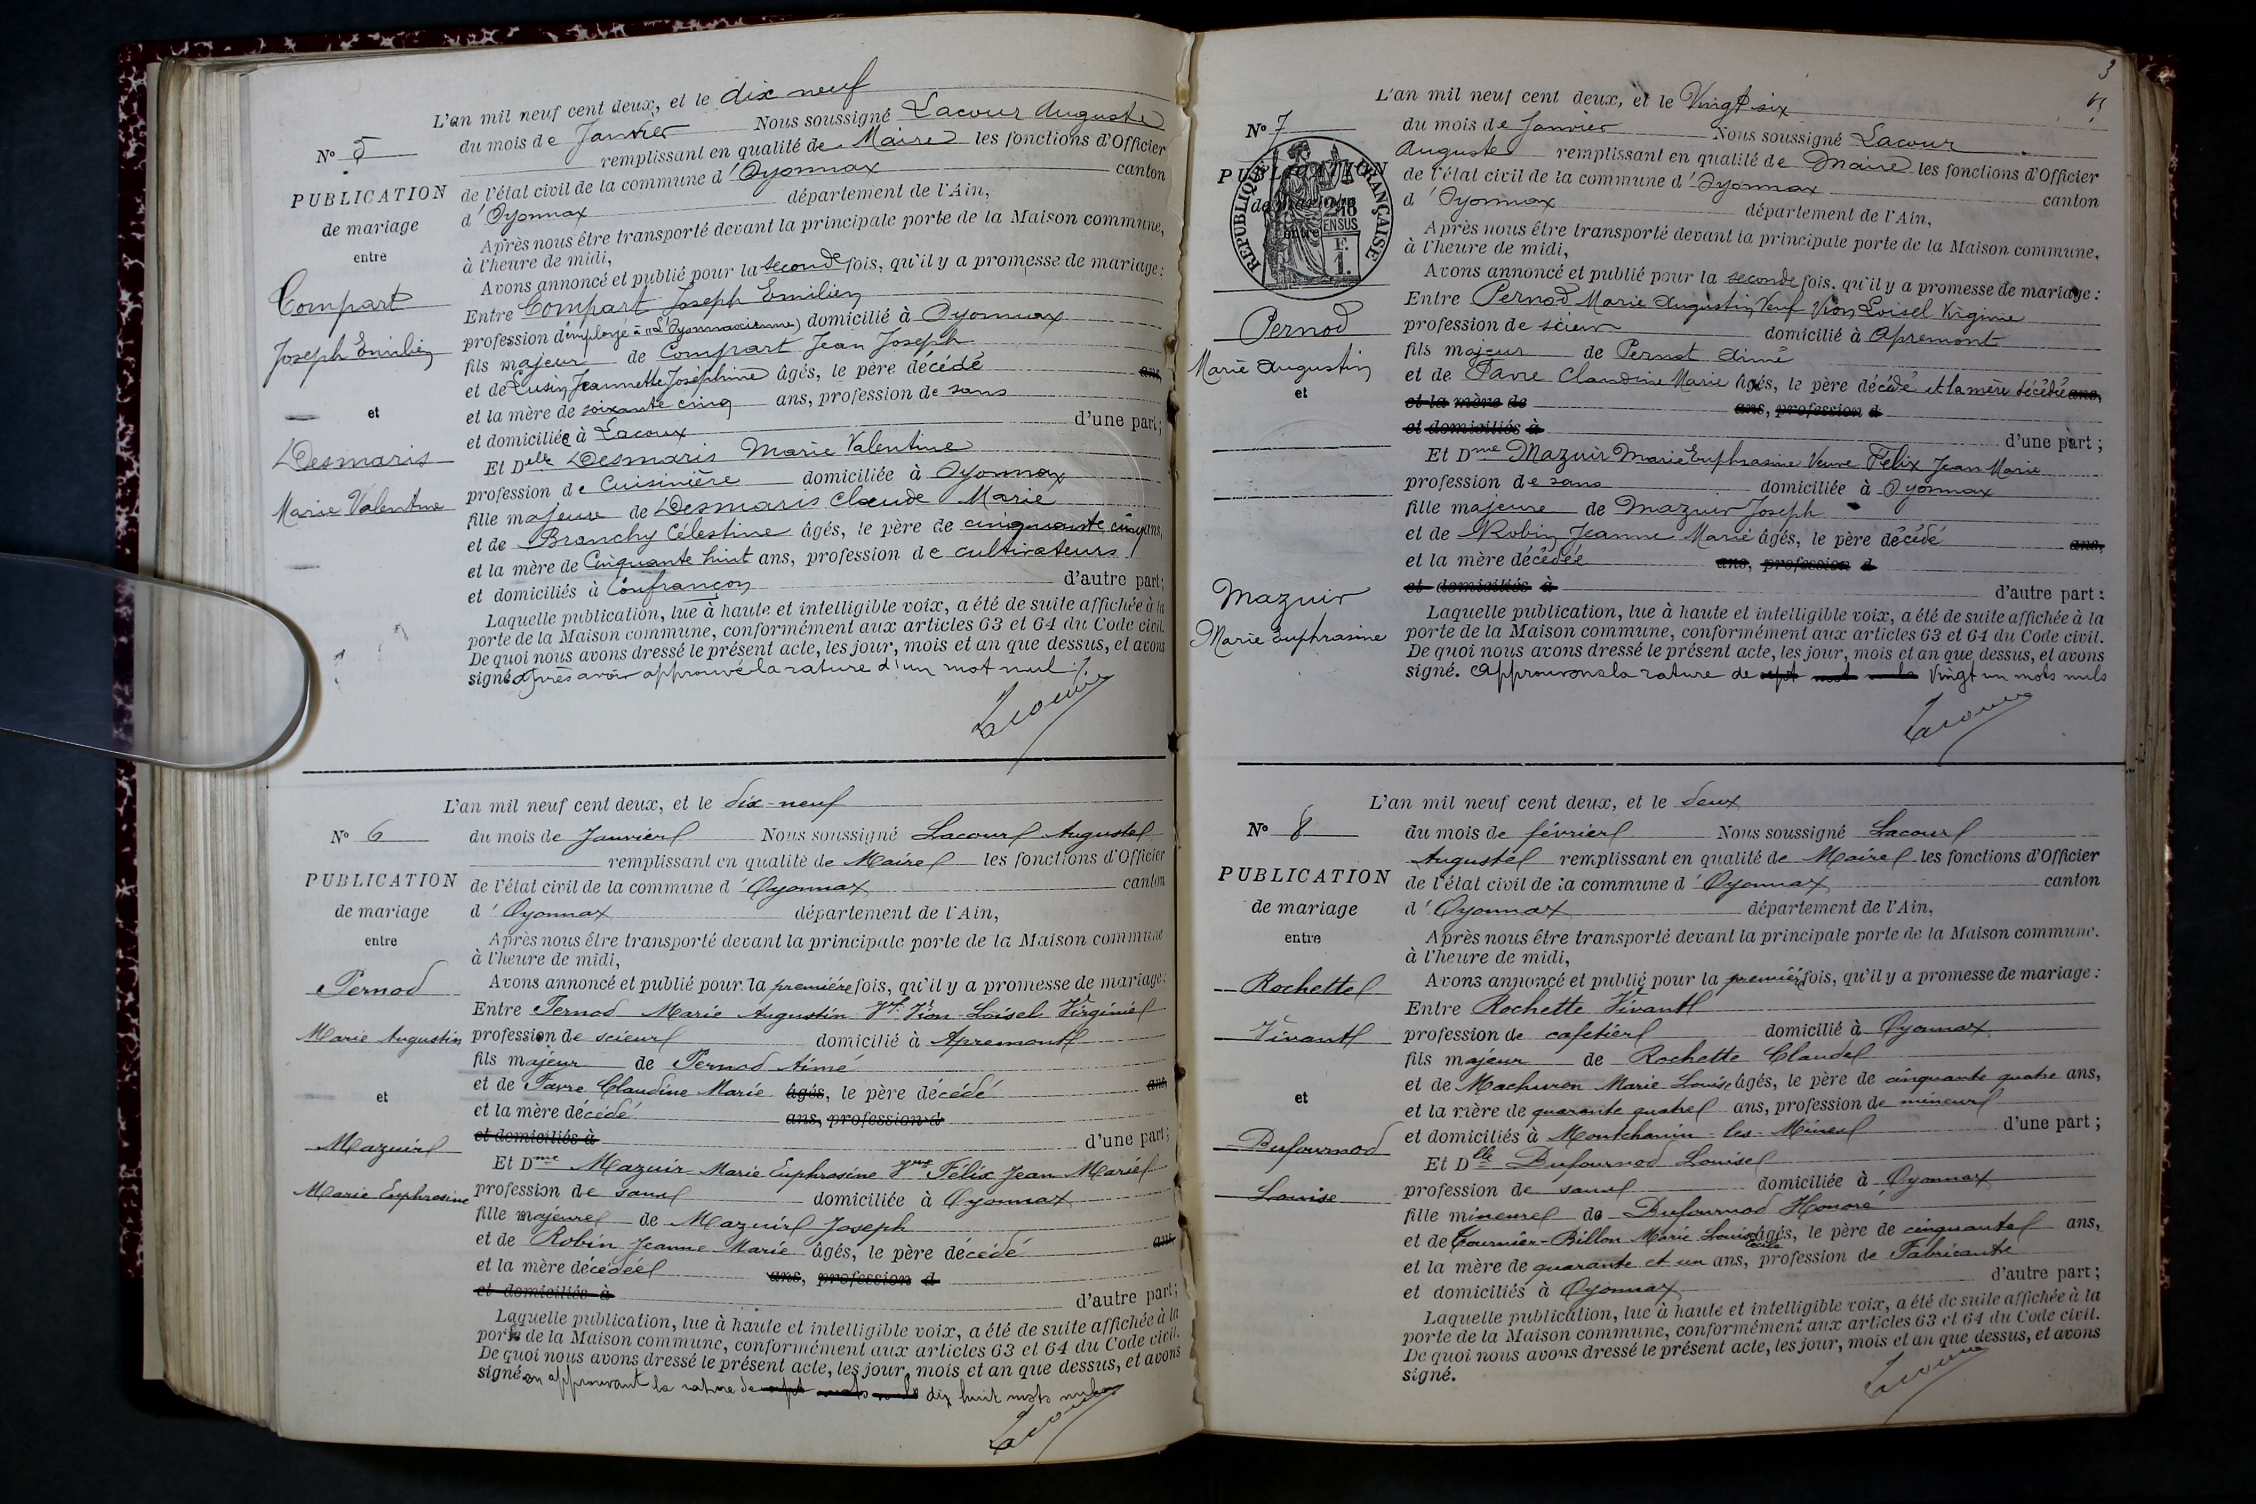 L'an mil neuf cent deux, et le dix neuf
N° 5
du mois de Janvier Nous soussigné Lacour Auguste
remplissant en qualité de Maire les fonctions d'Officier
PUBLICATION
de l'état civil de la commune d'Oyonnax canton
de mariage
d'Oyonnax département de l'Ain,
entre
Après nous être transporté devant la principale porte de la Maison commune,
à l'heure de midi,
Avons annoncé et publié pour la seconde fois, qu'il y a promesse de mariage:
Compart
Joseph Emilien
Entre Compart Joseph Emilien
profession d'employé à "L'Oyonnaxienne" domicilié à Oyonnax
fils majeur de Compart Jean Joseph
et de Lusin Jeannette Joséphine âgés, le père décédé ans,
et
et la mère de soixante cinq ans, profession de sans
et domiciliée à Lacoux d'une part;
Desmaris
Marie Valentine
Et Delle Desmaris Marie Valentine
profession de Cuisinière domiciliée à Oyonnax
fille majeure de Desmaris Claude Marie
et de Branchy Célestine âgés, le père de cinquante cinq ans,
et la mère de Cinquante huit ans, profession de cultivateurs
et domiciliés à Confrançon d'autre part;
Laquelle publication, lue à haute et intelligible voix, a été de suite affichée à la
porte de la Maison commune, conformément aux articles 63 et 64 du Code civil.
De quoi nous avons dressé le présent acte, les jour, mois et an que dessus, et avons
signé après avoir approuvé la rature d'un mot nul ./.
Lacour
L'an mil neuf cent deux, et le dix-neuf
N° 6
du mois de Janvier Nous soussigné Lacour Auguste
remplissant en qualité de Maire les fonctions d'Officier
PUBLICATION
de l'état civil de la commune d'Oyonnax canton
de mariage
d'Oyonnax département de l'Ain,
entre
Après nous être transporté devant la principale porte de la Maison commune
à l'heure de midi,
Pernod
Marie Augustin
Avons annoncé et publié pour la première fois, qu'il y a promesse de mariage:
Entre Pernod Marie Augustin Vf Vion-Loisel Virginie
profession de scieur domicilié à Apremont
fils majeur de Pernod Aimé
et de Favre Claudine Marie âgés, le père décédé ans,
et
et la mère décédé ans, profession d
et domiciliés à d'une part;
Mazuir
Marie Euphrasine
Et Dme Mazuir Marie Euphrosine Vve Félix Jean Marie
profession de sans domiciliée à Oyonnax
fille majeure de Mazuir Joseph
et de Robin Jeanne Marie âgés, le père décédé ans
et la mère décédée ans, profession d
et domiciliés à d'autre part;
Laquelle publication, lue à haute et intelligible voix, a été de suite affichée à la
porte de la Maison commune, conformément aux articles 63 et 64 du Code civil.
De quoi nous avons dressé le présent acte, les jour, mois et an que dessus, et avons
signé en approuvant la rature de sept mots nuls dix huit mots nuls
Lacour
3
L'an mil neuf cent deux, et le Vingt six
N° 7
du mois de Janvier Nous soussigné Lacour
Auguste remplissant en qualité de Maire les fonctions d'Officier
PUBLICATION
de l'état civil de la commune d'Oyonnax canton
de mariage
d'Oyonnax département de l'Ain,
entre
RÉPUBLIQUE FRANÇAISE
EN SUS
F.
1.
Après nous être transporté devant la principale porte de la Maison commune,
à l'heure de midi,
Avons annoncé et publié pour la seconde fois, qu'il y a promesse de mariage:
Pernod
Marie Augustin
Entre Pernod Marie Augustin Veuf Vion Loisel Virginie
profession de scieur domicilié à Apremont
fils majeur de Pernot Aimé
et de Favre Claudine Marie âgés, le père décédé et la mère décédée ans,
et
et la mère de ans, profession d
et domiciliés à d'une part;
Et Dme Mazuir Marie Euphrasine Veuve Félix Jean Marie
profession de sans domiciliée à Oyonnax
fille majeure de Mazuir Joseph
et de Robin Jeanne Marie âgés, le père décédé ans,
et la mère décédée ans, profession d
et domiciliés à d'autre part:
Mazuir
Marie Euphrasine
Laquelle publication, lue à haute et intelligible voix, a été de suite affichée à la
porte de la Maison commune, conformément aux articles 63 et 64 du Code civil.
De quoi nous avons dressé le présent acte, les jour, mois et an que dessus, et avons
signé. Approuvons la rature de sept mots nuls Vingt un mots nuls
Lacour
L'an mil neuf cent deux, et le deux
N° 8
du mois de février Nous soussigné Lacour
Auguste remplissant en qualité de Maire les fonctions d'Officier
PUBLICATION
de l'état civil de la commune d'Oyonnax canton
de mariage
d'Oyonnax département de l'Ain,
entre
Après nous être transporté devant la principale porte de la Maison commune.
à l'heure de midi,
Rochette
Vivant
Avons annoncé et publié pour la première fois, qu'il y a promesse de mariage:
Entre Rochette Vivant
profession de cafetier domicilié à Oyonnax
fils majeur de Rochette Claude
et de Machuron Marie Louise âgés, le père de cinquante quatre ans,
et
et la mère de quarante quatre ans, profession de mineur
et domiciliés à Montchanin-les-Mines d'une part;
Dufournod
Louise
Et Dlle Dufournod Louise
profession de sans domiciliée à Oyonnax
fille mineure de Dufournod Honoré
et de Tournier-Billon Marie Louise Cécile âgés, le père de cinquante ans,
et la mère de quarante et un ans, profession de Fabricante
et domiciliés à Oyonnax d'autre part;
Laquelle publication, lue à haute et intelligible voix, a été de suite affichée à la
porte de la Maison commune, conformément aux articles 63 et 64 du Code civil.
De quoi nous avons dressé le présent acte, les jour, mois et an que dessus, et avons
signé.
Lacour